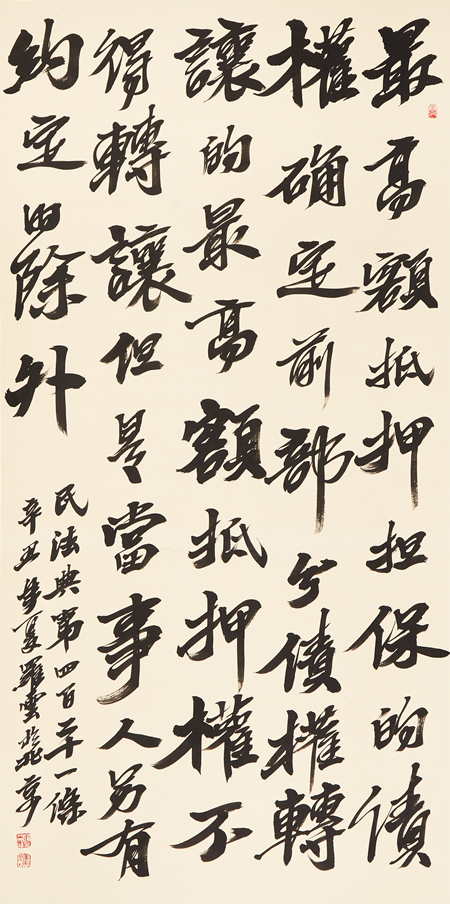 最高額抵押担保的債
權确定前部分債權轉
讓的最高額抵押權不
得轉讓但是當事人另有
約定的除外
民法典第四百二十一條
辛丑夏羅雲於北京